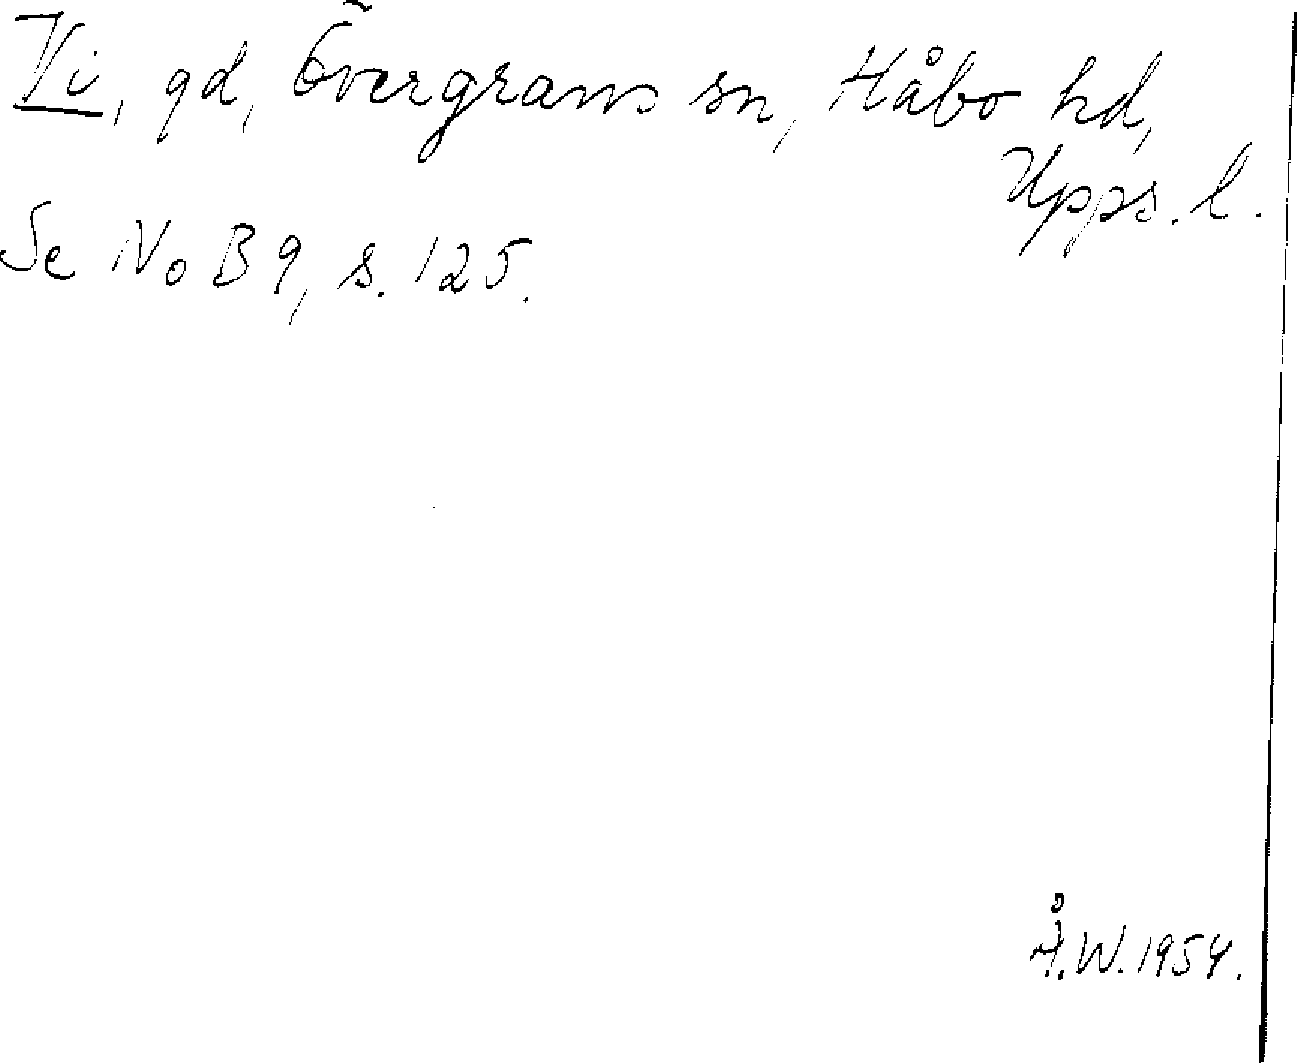 Vi, gd, Övergrans sn, Håbo hd,
Upps. l.
Se NoB 9, s. 125.
Å.W. 1954.